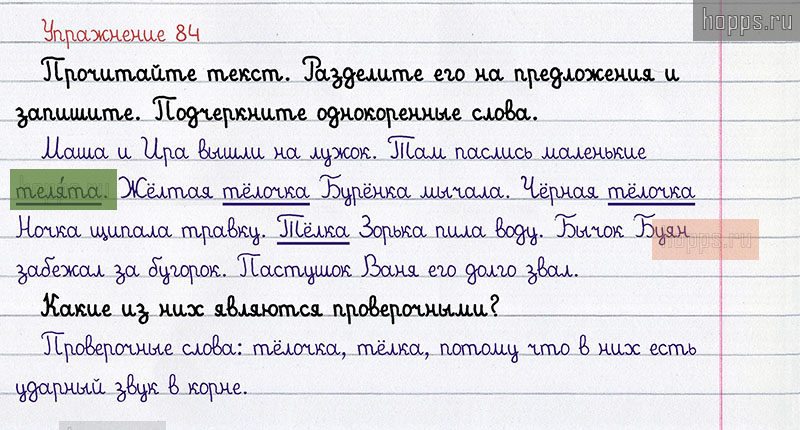 hopps.ru
Упражнение 84
Прочитайте текст. Разделите его на предложения и
запишите. Подчеркните однокоренные слова.
Маша и Ира вышли на лужок. Там паслись маленькие
теля́та. Жёлтая тёлочка Бурёнка мычала. Чёрная тёлочка
Ночка щипала травку. Тёлка Зорька пила воду. Бычок Буян
hopps.ru
забежал за бугорок. Пастушок Ваня его долго звал.
Какие из них являются проверочными?
Проверочные слова: тёлочка, тёлка, потому что в них есть
ударный звук в корне.